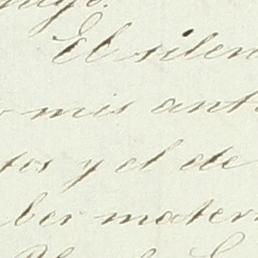 El silen
mis ant
tos y el de
ber mater